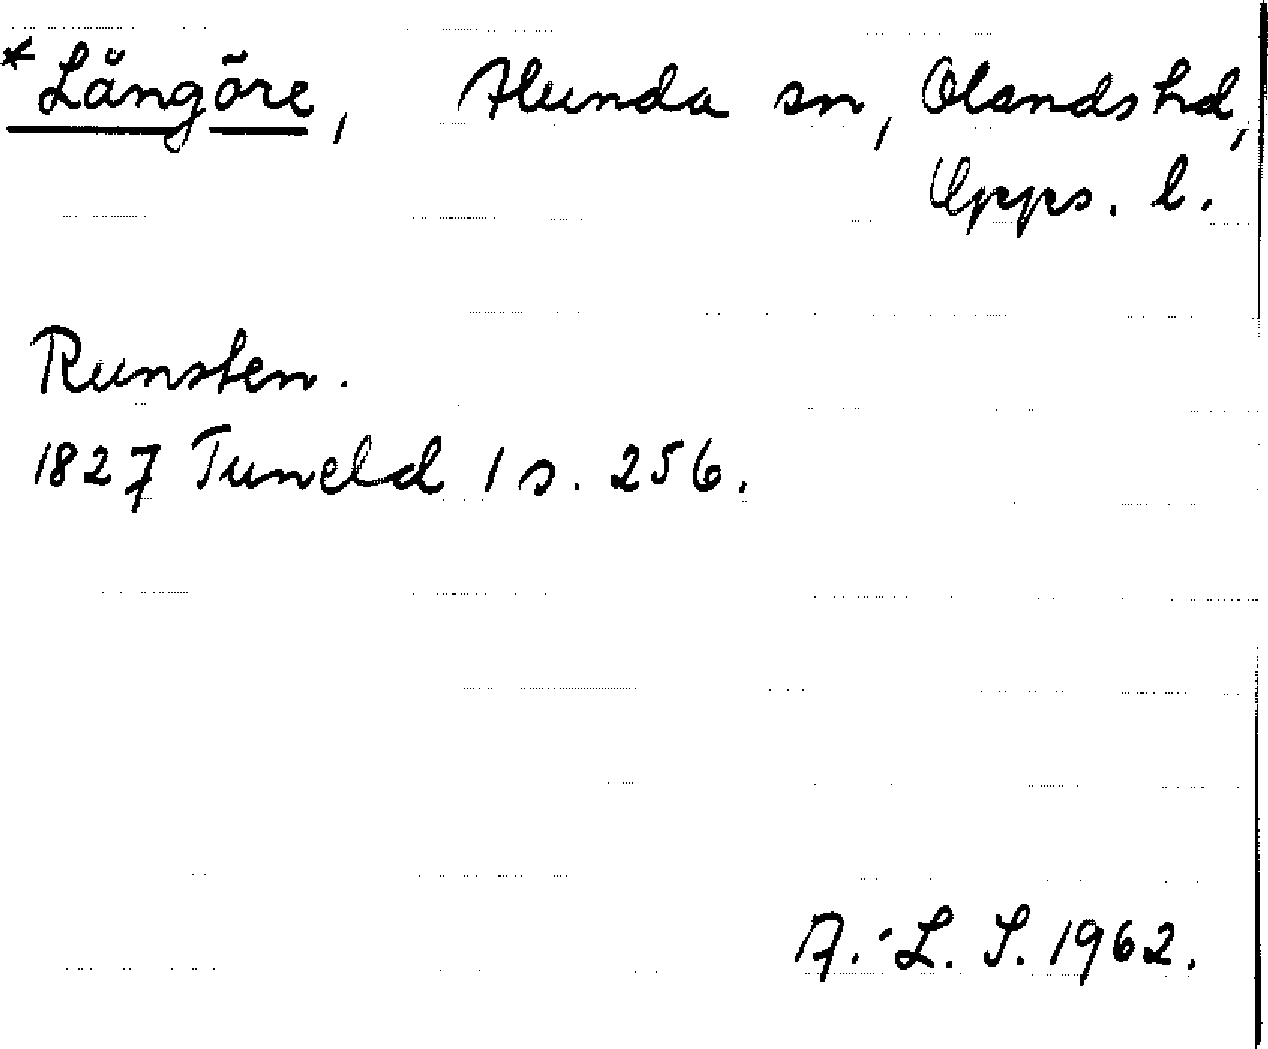 *Långöre, Alunda sn, Olands hd,
Upps. l.
Runsten.
1827 Tuneld 1 s. 256.
A.-L. S. 1962.